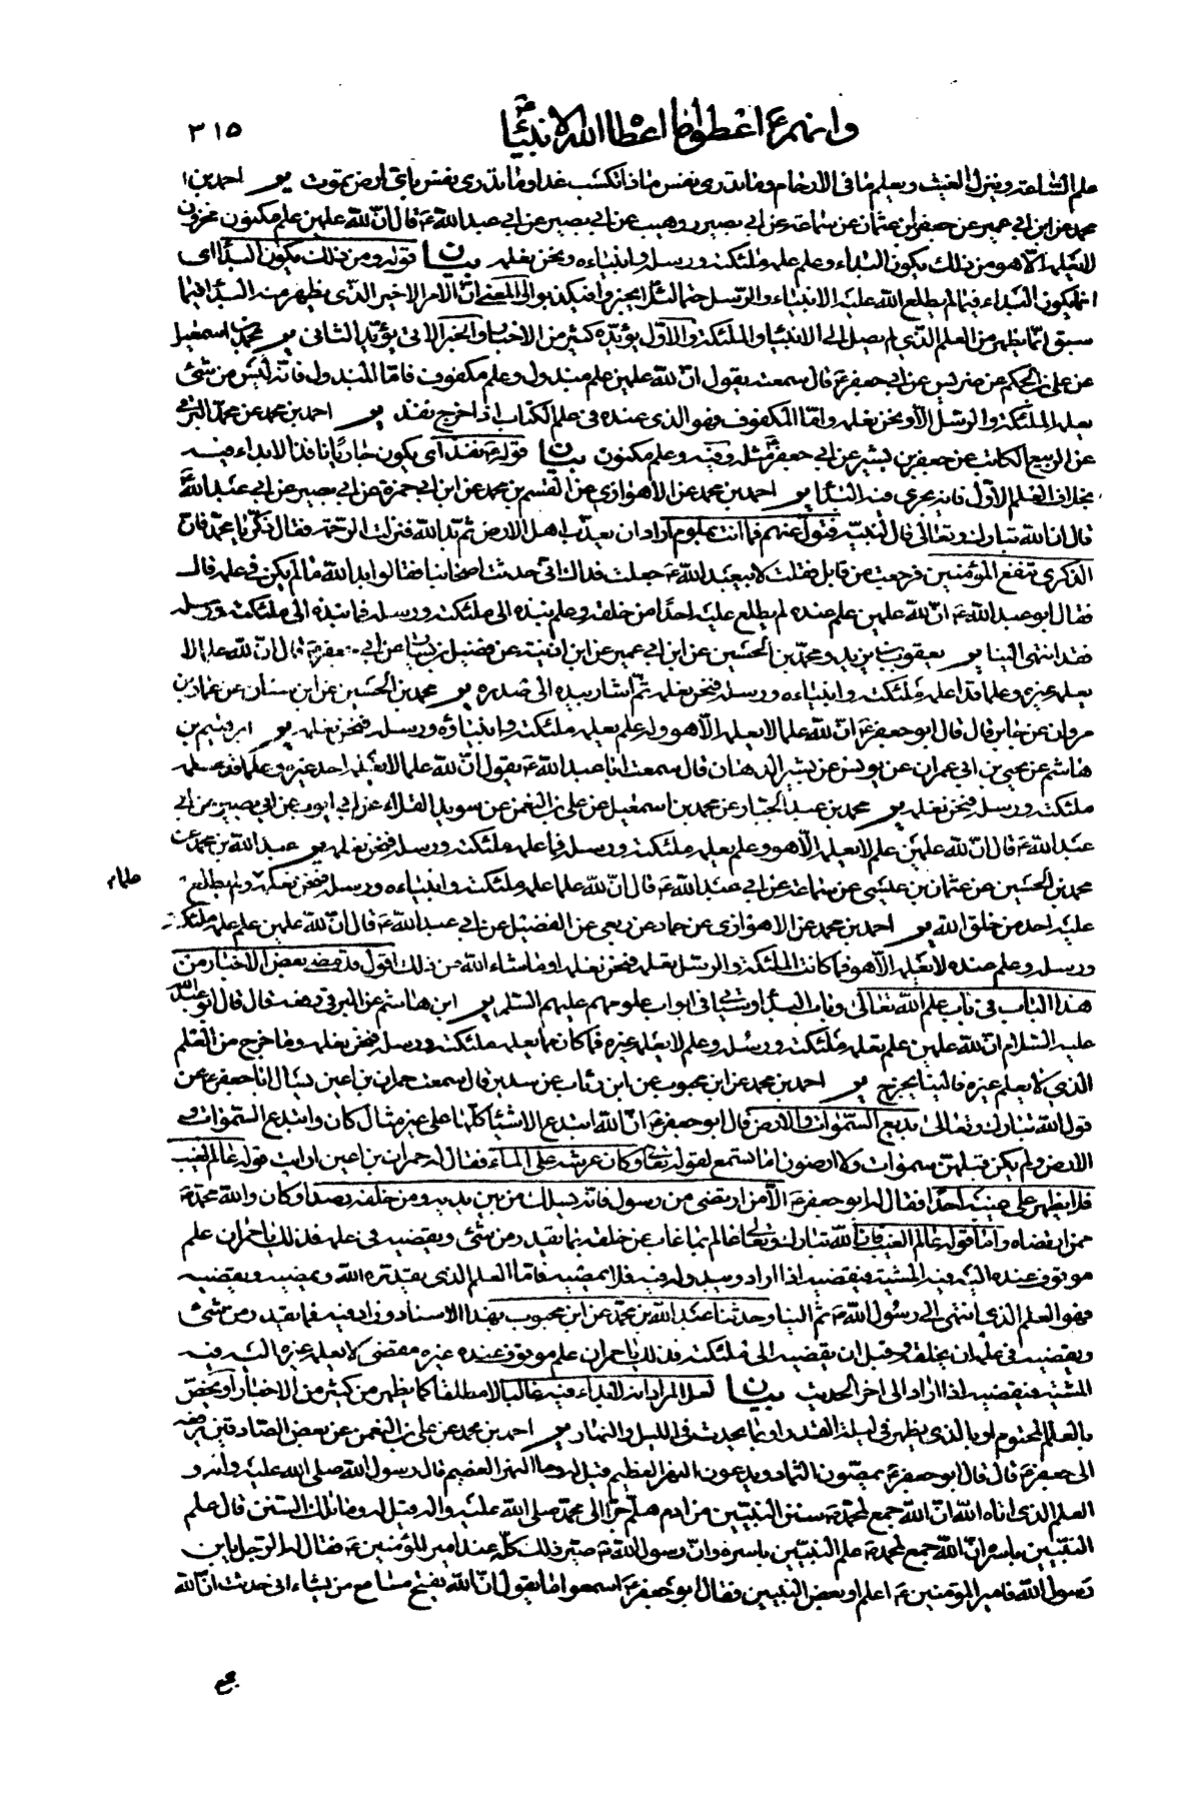 وانهم ع اعطوا ما اعطا الله الانبياء ۳۱۵
علم الساعة وينزل الغيث ويعلم ما في الارحام وما تدري نفس ماذا تكسب غدا وما تدري نفس باي ارض تموت ير احمد بن
محمد عن ابن ابي عمير عن جعفر بن عثمان عن سماعة عن ابي بصير ووهيب عن ابي بصير عن ابي عبد الله ع قال ان لله علمين علم مكنون مخزون
لا يعلمه الا هو من ذلك يكون البداء وعلم علمه ملئكته ورسله وانبياءه ونحن نعلمه بيان قوله ومن ذلك يكون البدا اي
انما يكون البداء فيما لم يطلع الله عليه الانبياء والرسل حتما لئلا يخبروا فيكذبوا او المعنى ان الامر الاخير الذي يظهر منه البداء فيما
سبق انما يظهر من العلم الذي لم يصل الى الانبيا والملئكة والاول يؤيده كثير من الاخبار والخبر الاتي يؤيد الثاني ير محمد بن اسمعيل
عن علي بن الحكم عن ضريس عن ابي جعفر ع قال سمعته يقول ان لله علمين علم مبذول وعلم مكفوف فاما المبذول فانه ليس من شئ
يعلمه الملئكة والرسل الا ونحن نعلمه واما المكفوف فهو الذي عنده في علم الكتاب اذا خرج نفذ ير احمد بن محمد عن محمد البرقي
عن الربيع الكاتب عن جعفر بن بشير عن ابي جعفر ع مثله وفيه وعلم مكنون بيان قوله ع نفذ اي يكون جاريا نافذا لا بداء فيه
بخلاف العلم الاول فانه يجري فيه البدا ير احمد بن محمد عن الاهوازي عن القسم بن محمد عن ابن ابي حمزة عن ابي بصير عن ابي عبد الله
قال ان الله تبارك وتعالى قال لنبيه فتول عنهم فما انت بملوم اراد ان يعذب اهل الارض ثم بدا لله فنزلت الرحمة فقال ذكر يا محمد فان
الذكرى تنفع المؤمنين فرجعت من قابل فقلت لابي عبد الله ع جعلت فداك اني حدثت اصحابنا فقالوا بدا لله ما لم يكن في علمه قال
فقال ابو عبد الله ع ان لله علمين علم عنده لم يطلع عليه احدا من خلقه وعلم نبذه الى ملئكته ورسله فما نبذه الى ملئكته ورسله
فقد انتهى الينا ير يعقوب بن يزيد ومحمد بن الحسين عن ابن ابي عمير عن ابن اذينة عن فضيل بن يسار عن ابي جعفر ع قال ان لله علما لا
يعلمه غيره وعلما قد اعلمه ملئكته وانبياءه ورسله فنحن نعلمه ثم اشار بيده الى صدره ير محمد بن الحسين عن ابن سنان عن عمار بن
مروان عن جابر قال قال ابو جعفر ع ان لله علما لا يعلمه الا هو وله علم يعلمه ملئكته وانبياؤه ورسله فنحن نعلمه ير ابرهيم بن
هاشم عن يحيى بن ابي عمران عن يونس عن بشير الدهان قال سمعت ابا عبد الله ع يقول ان لله علما لا يعلمه احد غيره وعلما قد علمه
ملئكته ورسله فنحن نعلمه ير محمد بن عبد الجبار عن محمد بن اسمعيل عن علي بن النعمن عن سويد القلاء عن ابي ايوب عن ابي بصير عن ابي
عبد الله ع قال ان لله علمين علم لا يعلمه الا هو وعلم يعلمه ملئكته ورسله فما علمه ملئكته ورسله فنحن نعلمه ير عبد الله بن محمد عن
محمد بن الحسين عن عثمان بن عيسى عن سماعة عن ابي عبد الله ع قال ان لله علما علمه ملئكته وانبياءه ورسله فنحن نعلمه ولم يطلع
عليه احد من خلق الله ير احمد بن محمد عن الاهوازي عن حماد عن ربعي عن الفضيل عن ابي عبد الله ع قال ان لله علمين علم علمه ملئكته
ورسله وعلم عنده لا يعلمه الا هو فما كانت الملئكة والرسل تعلمه فنحن نعلمه او ما شاء الله من ذلك اقول قد مضى بعض الاخبار من
هذا الباب في باب علم الله تعالى وباب البداء وسياتي في ابواب علومهم عليهم السلم ير ابن هاشم عن البرقي رفعه قال قال ابو عبد الله
عليه السلام ان لله علمين علم تعلمه ملئكته ورسله وعلم لا يعلمه غيره فما كان مما يعلمه ملئكته ورسله فنحن نعلمه وما خرج من العلم
الذي لا يعلم غيره فالينا يخرج ير احمد بن محمد عن ابن محبوب عن ابن رئاب عن سدير قال سمعت حمران بن اعين يسال ابا جعفر ع عن
قول الله تبارك وتعالى بديع السموات والارض قال ابو جعفر ع ان الله ابتدع الاشيا كلها على غير مثال كان وابتدع السموات و
الارض ولم يكن قبلهن سموات ولا ارضون اما تسمع لقوله تعالى وكان عرشه على الماء فقال له حمران بن اعين ارايت قوله عالم الغيب
فلا يظهر على غيبه احدا فقال له ابو جعفر ع الا من ارتضى من رسول فانه يسلك من بين يديه ومن خلفه رصدا وكان والله محمد ص
ممن ارتضاه واما قوله عالم الغيب فان الله تبارك وتعالى عالم بما غاب عن خلقه بما يقدر من شئ ويقضيه في علمه فذلك يا حمران علم
موقوف عنده اليه فيه المشية فيقضيه اذا اراد ويبدو له فيه فلا يمضيه فاما العلم الذي يقدره الله ويمضيه ويقضيه
فهو العلم الذي انتهى الى رسول الله ص ثم الينا وحدثنا عبد الله بن محمد عن ابن محبوب بهذا الاسناد وزاد فيه فما يقدر من شئ
ويقضيه في علمه ان يخلقه وقبل ان يقضيه الى ملئكته فذلك يا حمران علم موقوف عنده غير مقضي لا يعلمه غيره اليه فيه
المشية فيقضيه اذا اراد الى اخر الحديث بيان لعل المراد انه لا بداء فيه غالبا لا مطلقا كما يظهر من كثير من الاخبار او يخص
بالعلم المحتوم او بالذي يظهر في ليلة القدر او بما يحدث في الليل والنهار ير احمد بن محمد عن علي بن النعمن عن بعض الصادقين يرفعه
الى جعفر ع قال قال ابو جعفر ع يمصون الثماد ويدعون النهر العظيم قيل له وما النهر العظيم قال رسول الله صلى الله عليه واله و
العلم الذي اتاه الله ان الله جمع لمحمد ص سنن النبيين من ادم هلم جرا الى محمد صلى الله عليه واله قيل له وما تلك السنن قال علم
النبيين باسره ان الله جمع لمحمد ص علم النبيين باسره وان رسول الله ص صير ذلك كله عند امير المؤمنين ع فقال له الرجل يا بن
رسول الله فامير المؤمنين ع اعلم او بعض النبيين فقال ابو جعفر ع اسمعوا ما يقول ان الله يفتح مسامع من يشاء اني حدثت ان الله